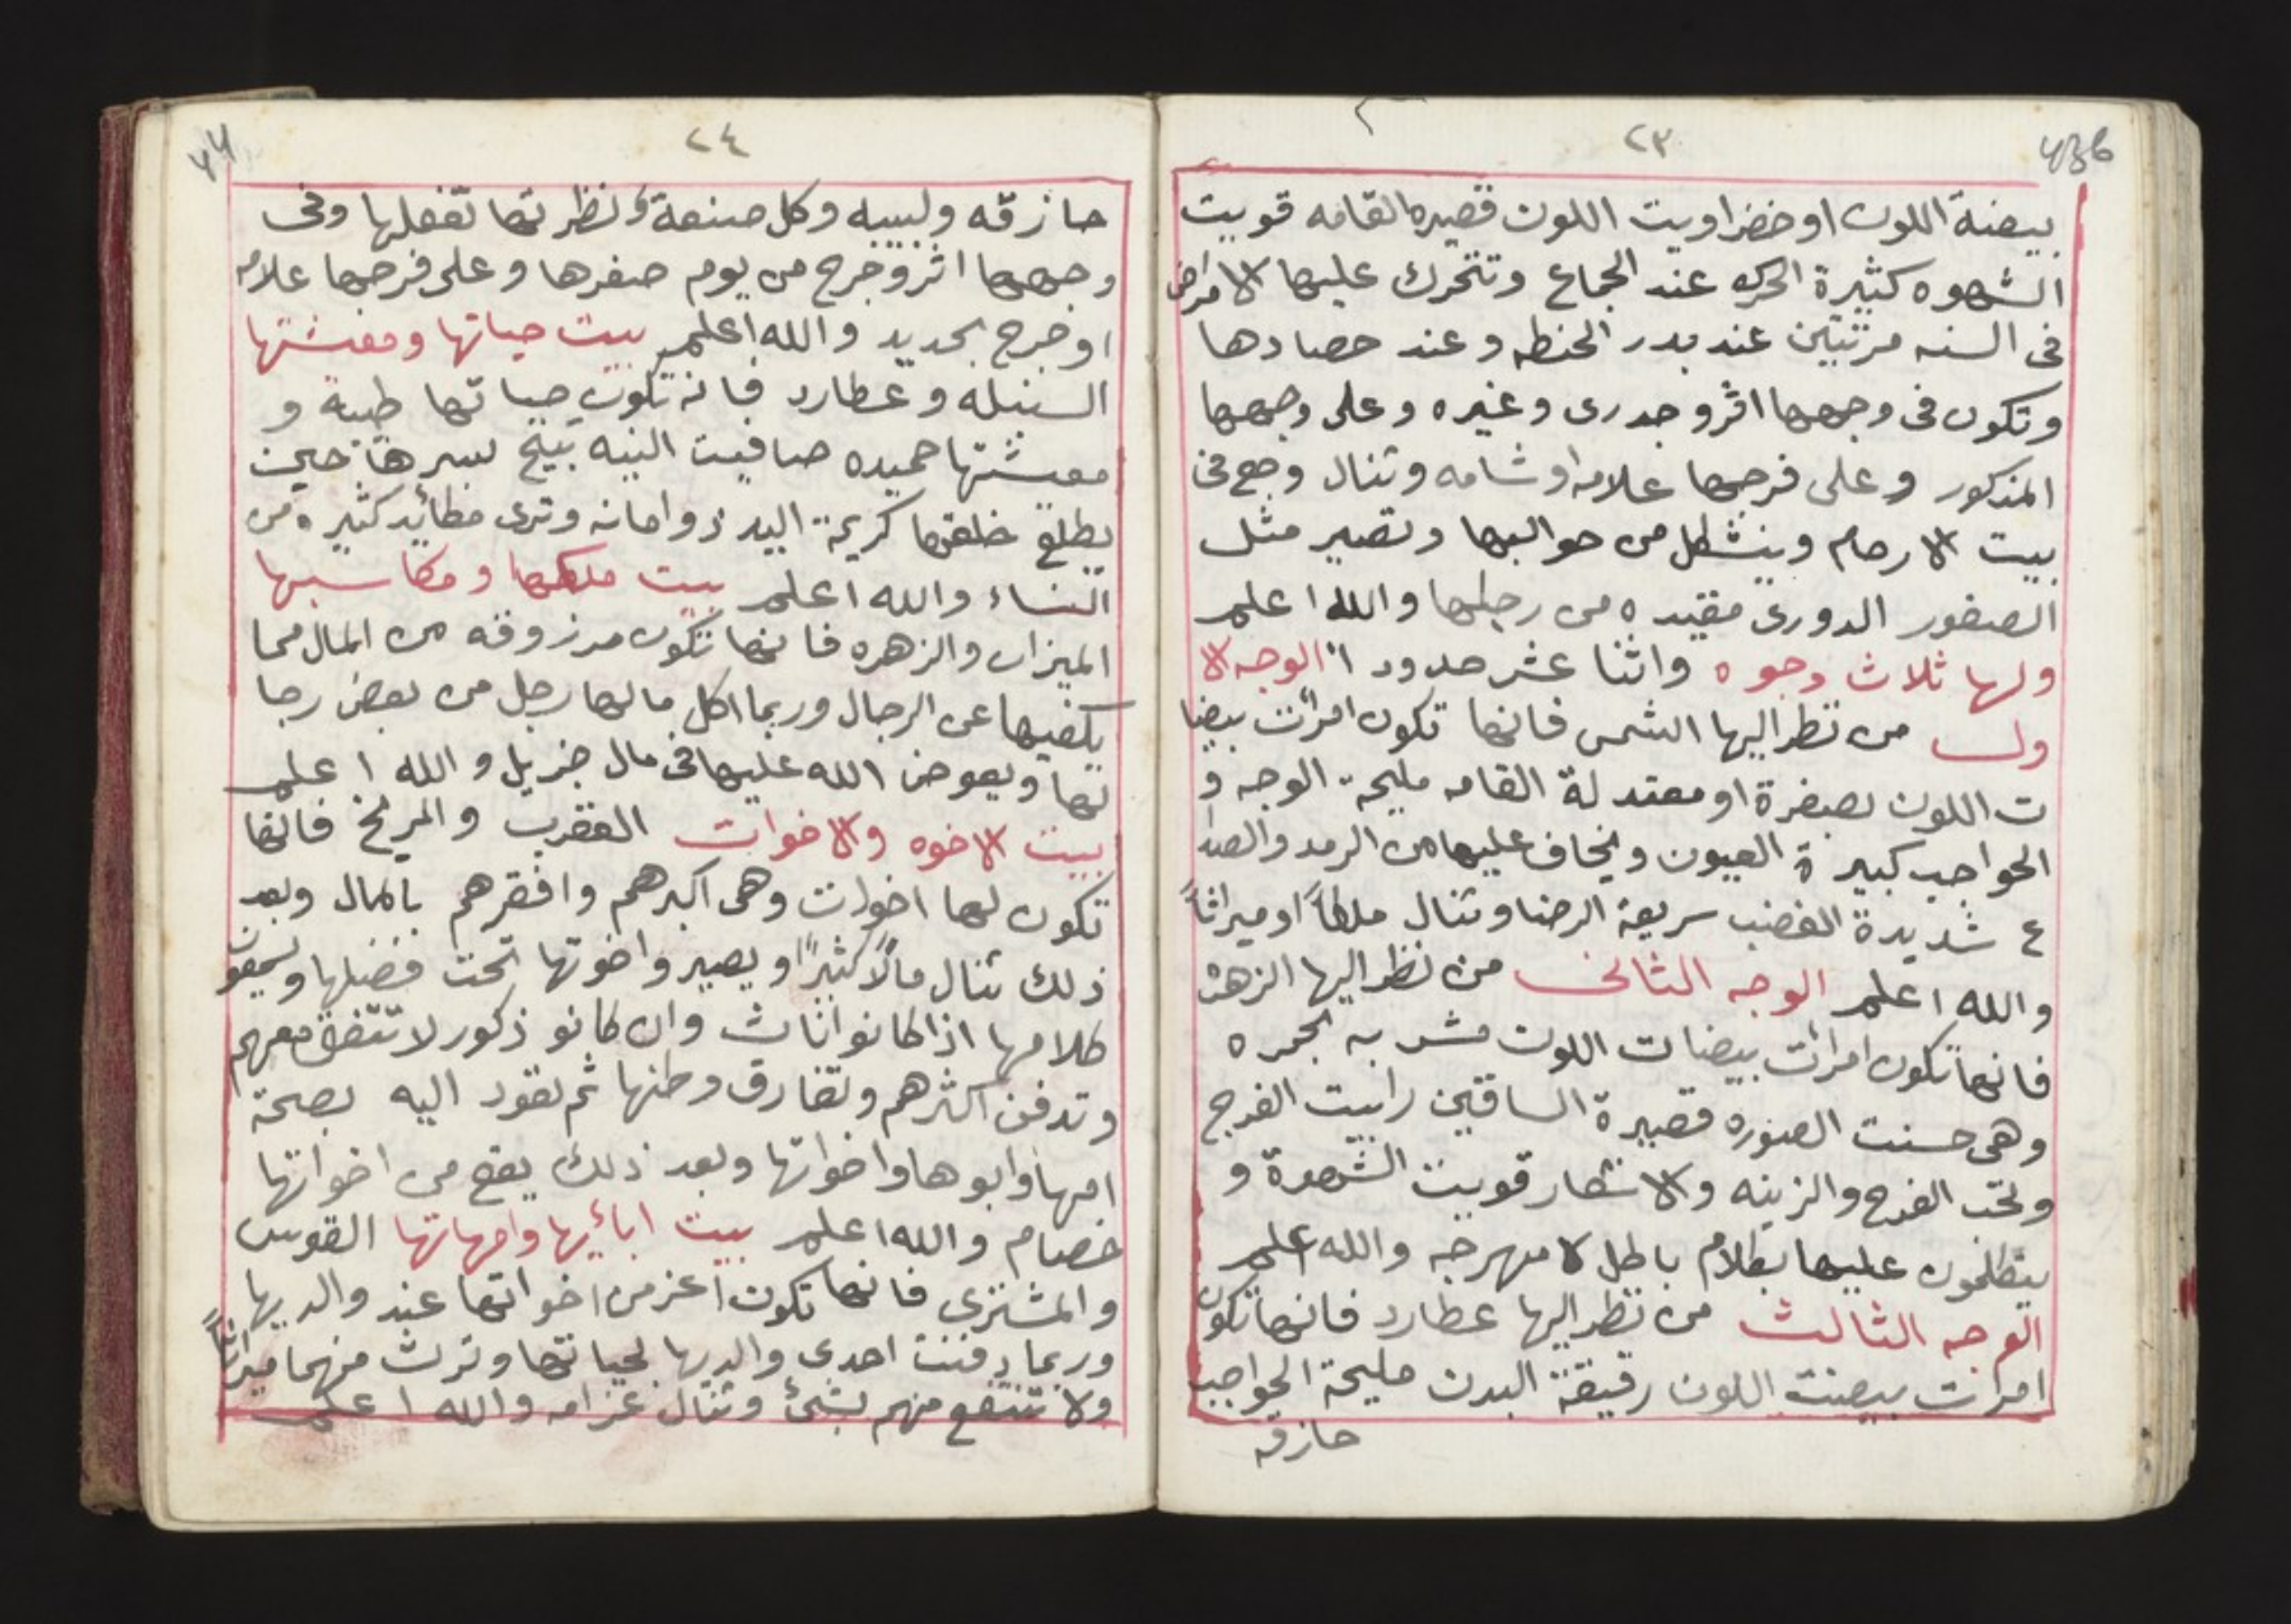 ٢٣
بيضة اللون او خضراويت اللون قصيره القامه قويت
الشهوه كثيرة الحركه عند الجماع وتتحرك عليها الامراض
فى السنه مرتين عند بدر الحنطه وعند حصادها
وتكون فى وجهها اثر وجدرى وغيره وعلى وجهها
المذكور وعلى فرجها علامه او شامه وتنال وجع فى
بيت الارحام وينشكل من حوالبها وتصير مثل
العصفور الدورى مقيده من رجلها والله اعلم
ولها ثلاث وجوه واثنا عشر حدود الوجه الا
ول من نظر اليها الشمس فانها تكون امرأت بيضا
ت اللون بصفرة او معتدلة القامه مليحة الوجه و
الحواجب كبيرة العيون ويخاف عليها من الرمد والصدا
ع شديدة الغضب سريعة الرضا وتنال ملكاً او ميراثاً
والله اعلم الوجه الثانى من نظر اليها الزهرة
فانها تكون امرأت بيضات اللون مشربه بحمره
وهى حسنت الصوره قصيرة الساقين رابيت الفرج
وتحب الفرح والزينه والاشتهار قويت الشهوة و
يتكلمون عليها بكلام باطل لا مهرجه والله اعلم
الوجه الثالث من نظر اليها عطارد فانها تكون
امرأت بيضت اللون رقيقة البدن مليحة الحواجب
حازقه
٢٤
حازقه ولبيبه وكل صنعة ونظرتها تفعلها وفى
وجهها اثر وجرح من يوم صغرها وعلى فرجها علامه
او جرح بحديد والله اعلم بيت حياتها ومعيشتها
السنبله وعطارد فانه تكون حياتها طيبة و
معيشتها حميده صافيت النيه تبيح بسرها حين
يطلع خلقها كريمة اليد ذو امانه وترى مكائيد كثيره من
النساء والله اعلم بيت ملكها ومكاسبها
الميزان والزهره فانها تكون مرزوقه من المال مما
يكفيها عن الرجال وربما اكل مالها رجل من بعض رجا
لها ويعوض الله عليها فى مال جزيل والله اعلم
بيت الاخوه والاخوات العقرب والمريخ فانها
تكون لها اخوات وهى اكبرهم وافقرهم بالمال وبعد
ذلك تنال مالاً كثيراً ويصير واخوتها تحت فضلها ويسمعون
كلامها اذا كانو اناث وان كانو ذكور لا تتفق معهم
وتدفن اكثرهم وتفارق وطنها ثم تعود اليه بصحة
امها وابوها واخواتها وبعد ذلك يقع من اخواتها
خصام والله اعلم بيت ابائيها وامهاتها القوس
والمشترى فانها تكون اعز من اخواتها عند والديها
وربما دفنت احدى والديها لحياتها وترث منهما ميراثاً
ولا تنتفع منهم بشئ وتنال غرامه والله اعلم